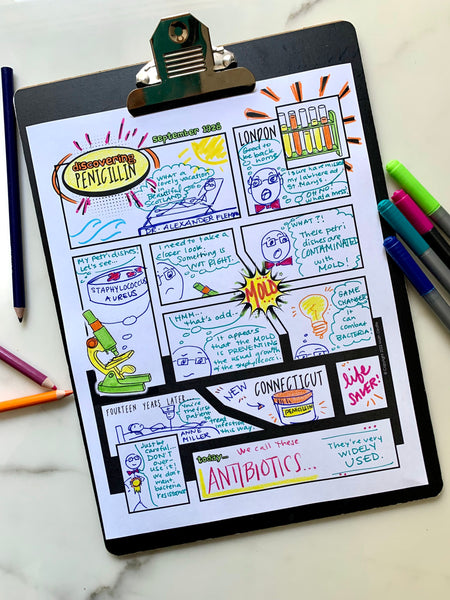 discovering
PENICILLIN
september 1928
WHAT A
lovely vacation
in
BEAUTIFUL
SCOTLAND
DR. ALEXANDER FLEMING
LONDON
Good to
be back
home
I sure have missed
my lab here at
St. Mary's.
OH NO!
What a mess.
My petri dishes!
Let's see...
STAPHYLOCOCCUS
AUREUS
I need to take a
closer look.
Something is
NOT RIGHT.
WHAT?!
These petri
dishes are
CONTAMINATED
with
MOLD!
MOLD
HMM...
that's odd...
It appears
that the MOLD
IS PREVENTING
the usual growth
of the staphylococci.
GAME
CHANGER
It
can
combat
BACTERIA!
FOURTEEN YEARS LATER...
You're
the first
patient
treat
infections
this way.
ANNE
MILLER
NEW
CONNECTICUT
PENICILLIN
life
saver!
Just be
careful.
DON'T
over
use it!
We don't
want
bacteria
resistance
today...
We call these
ANTIBIOTICS...
They're very
WIDELY
USED.